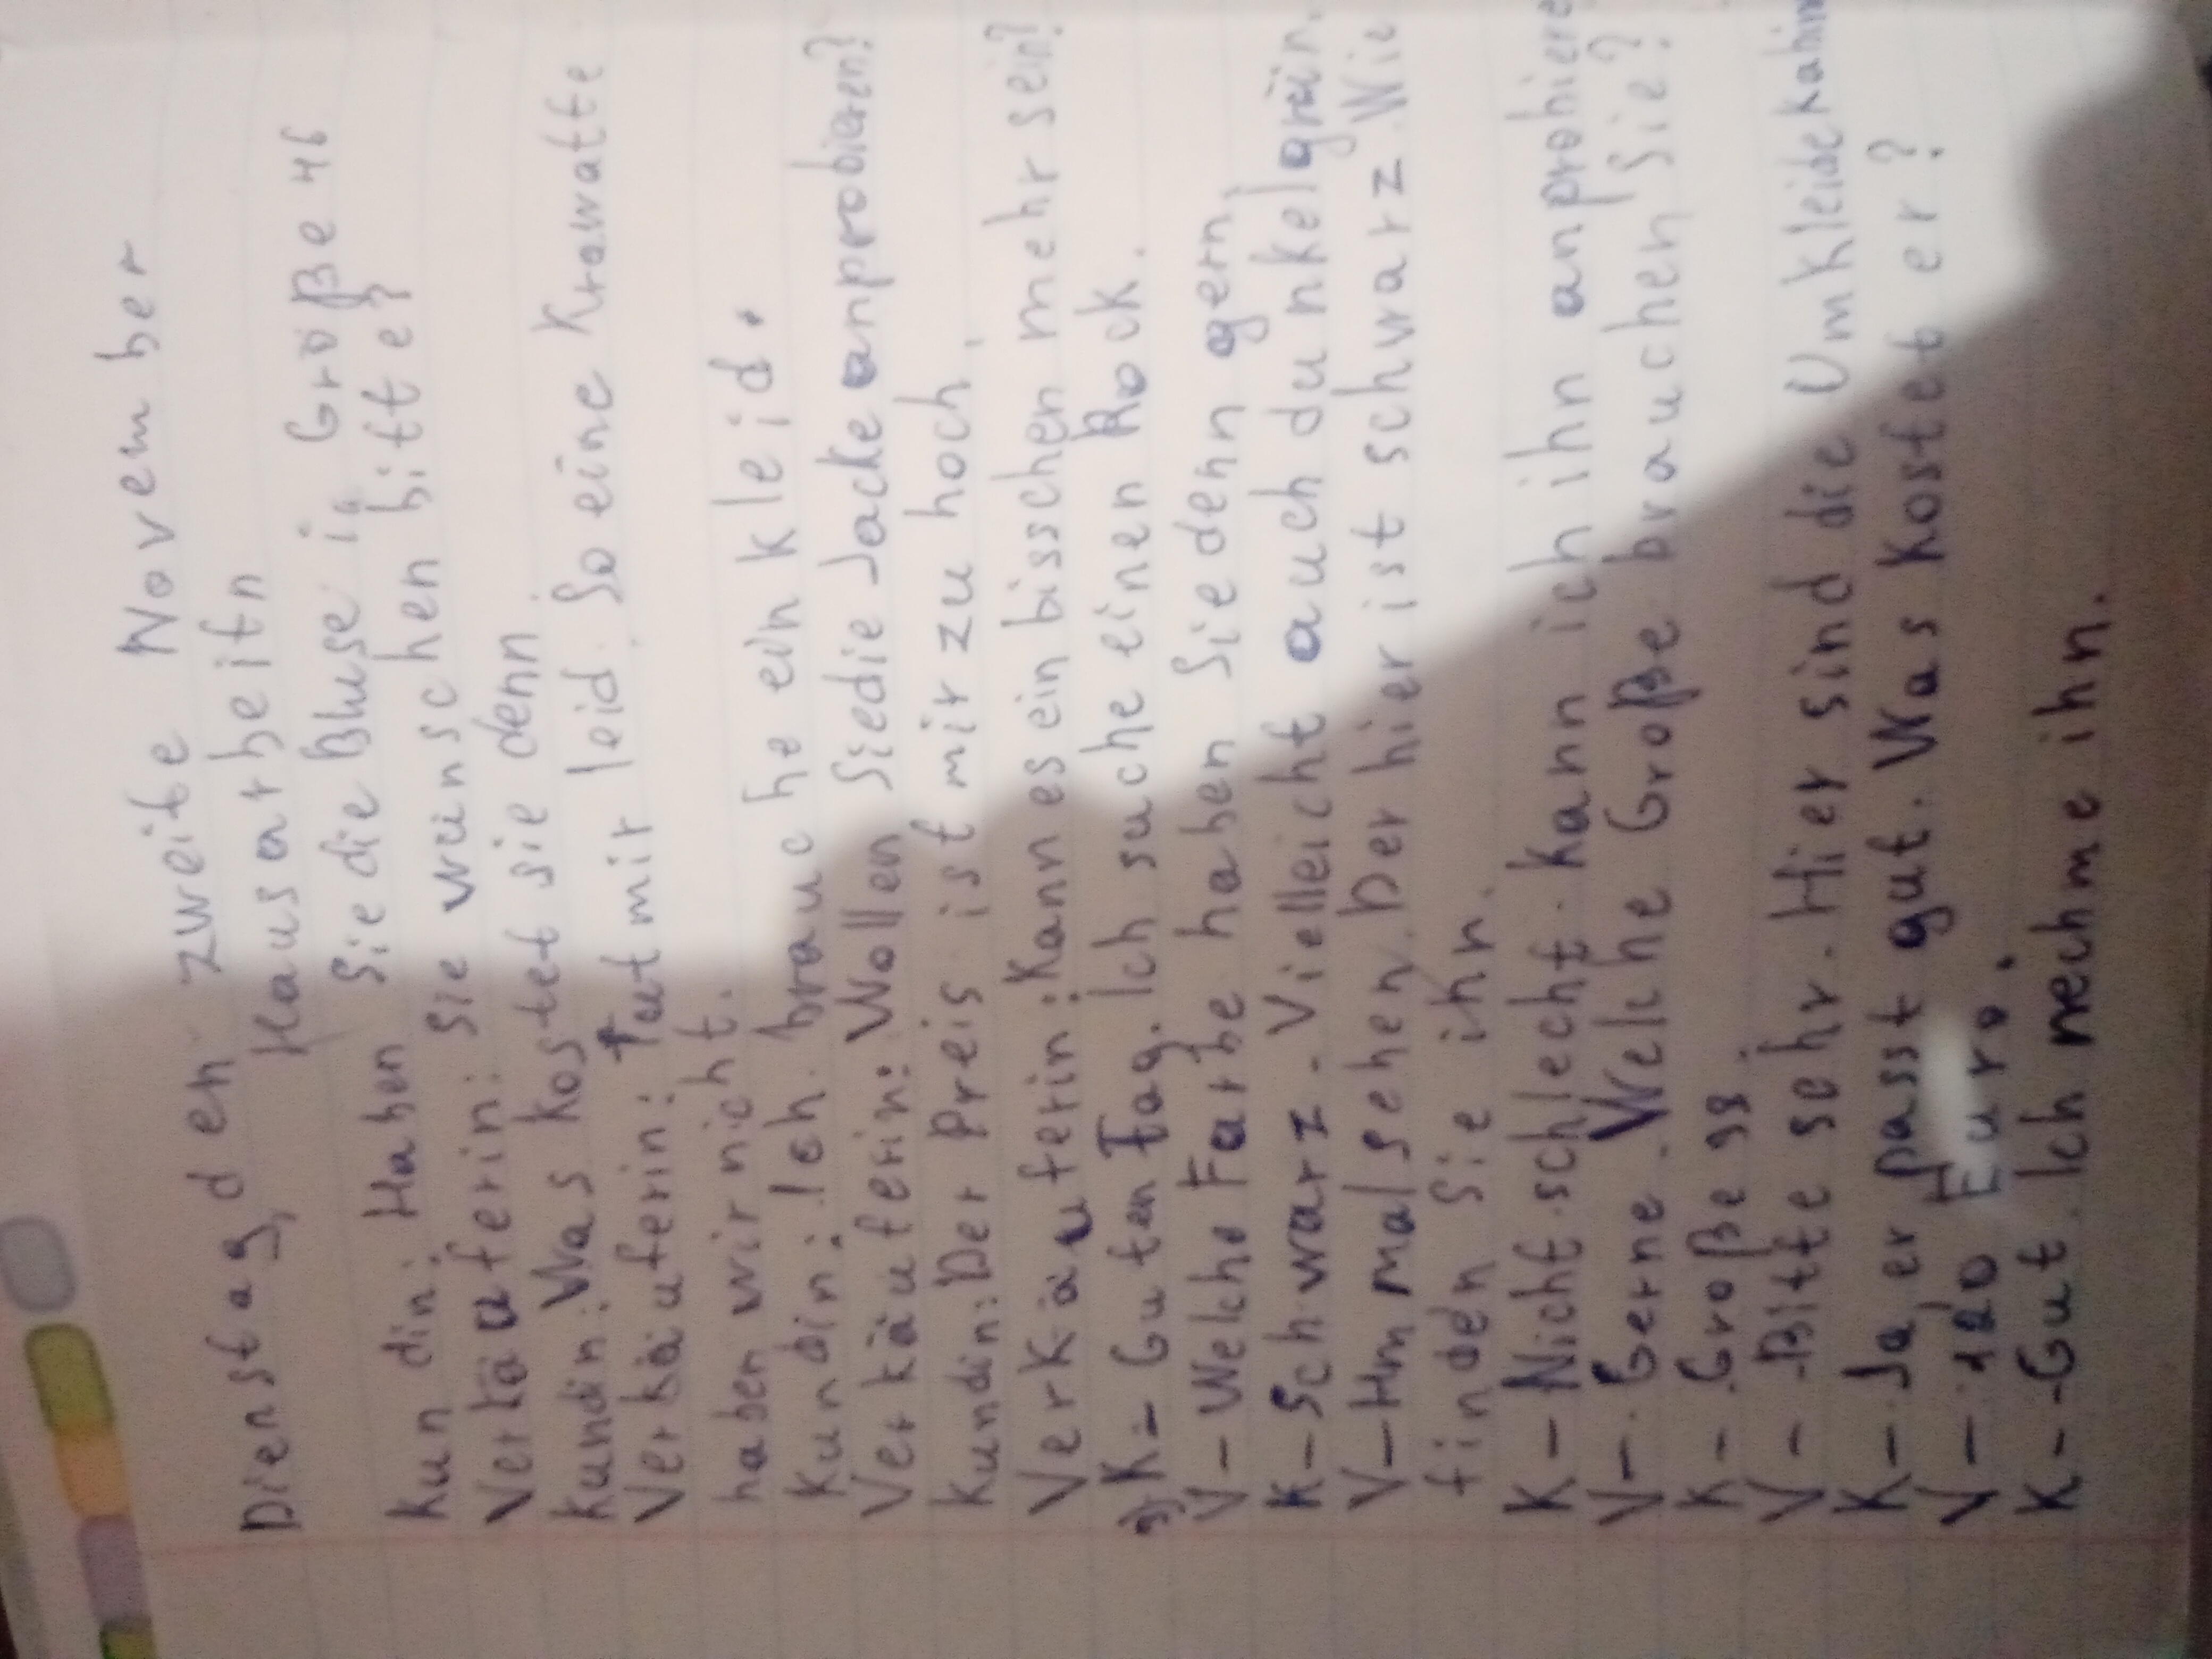 Dienstag, den zweite November
Hausarbeitn
Kundin: Haben Sie die Bluse in Größe 46
Verkäuferin: Sie wünschen bitte?
Kundin: Was kostet sie denn.
Verkäuferin: Tut mir leid. So eine Krawatte
haben wir nicht.
Kundin: Ich brauche ein Kleid.
Verkäuferin: Wollen Sie die Jacke anprobieren?
Kundin: Der Preis ist mir zu hoch.
Verkäuferin: Kann es ein bisschen mehr sein?
K - Guten Tag. Ich suche einen Rock.
V - Welche Farbe haben Sie denn gern,
K - Schwarz. Vielleicht auch dunkelgrün.
V - Hm mal sehen. Der hier ist schwarz. Wie
finden Sie ihn.
K - Nicht schlecht. Kann ich ihn anprobiere
V - Gerne. Welche Große brauchen Sie?
K - Große
V - Bitte sehr. Hier sind die Umkleidekabin
K - Ja, er passt gut. Was kostet er?
V - Euro.
K - Gut. Ich nechme ihn.